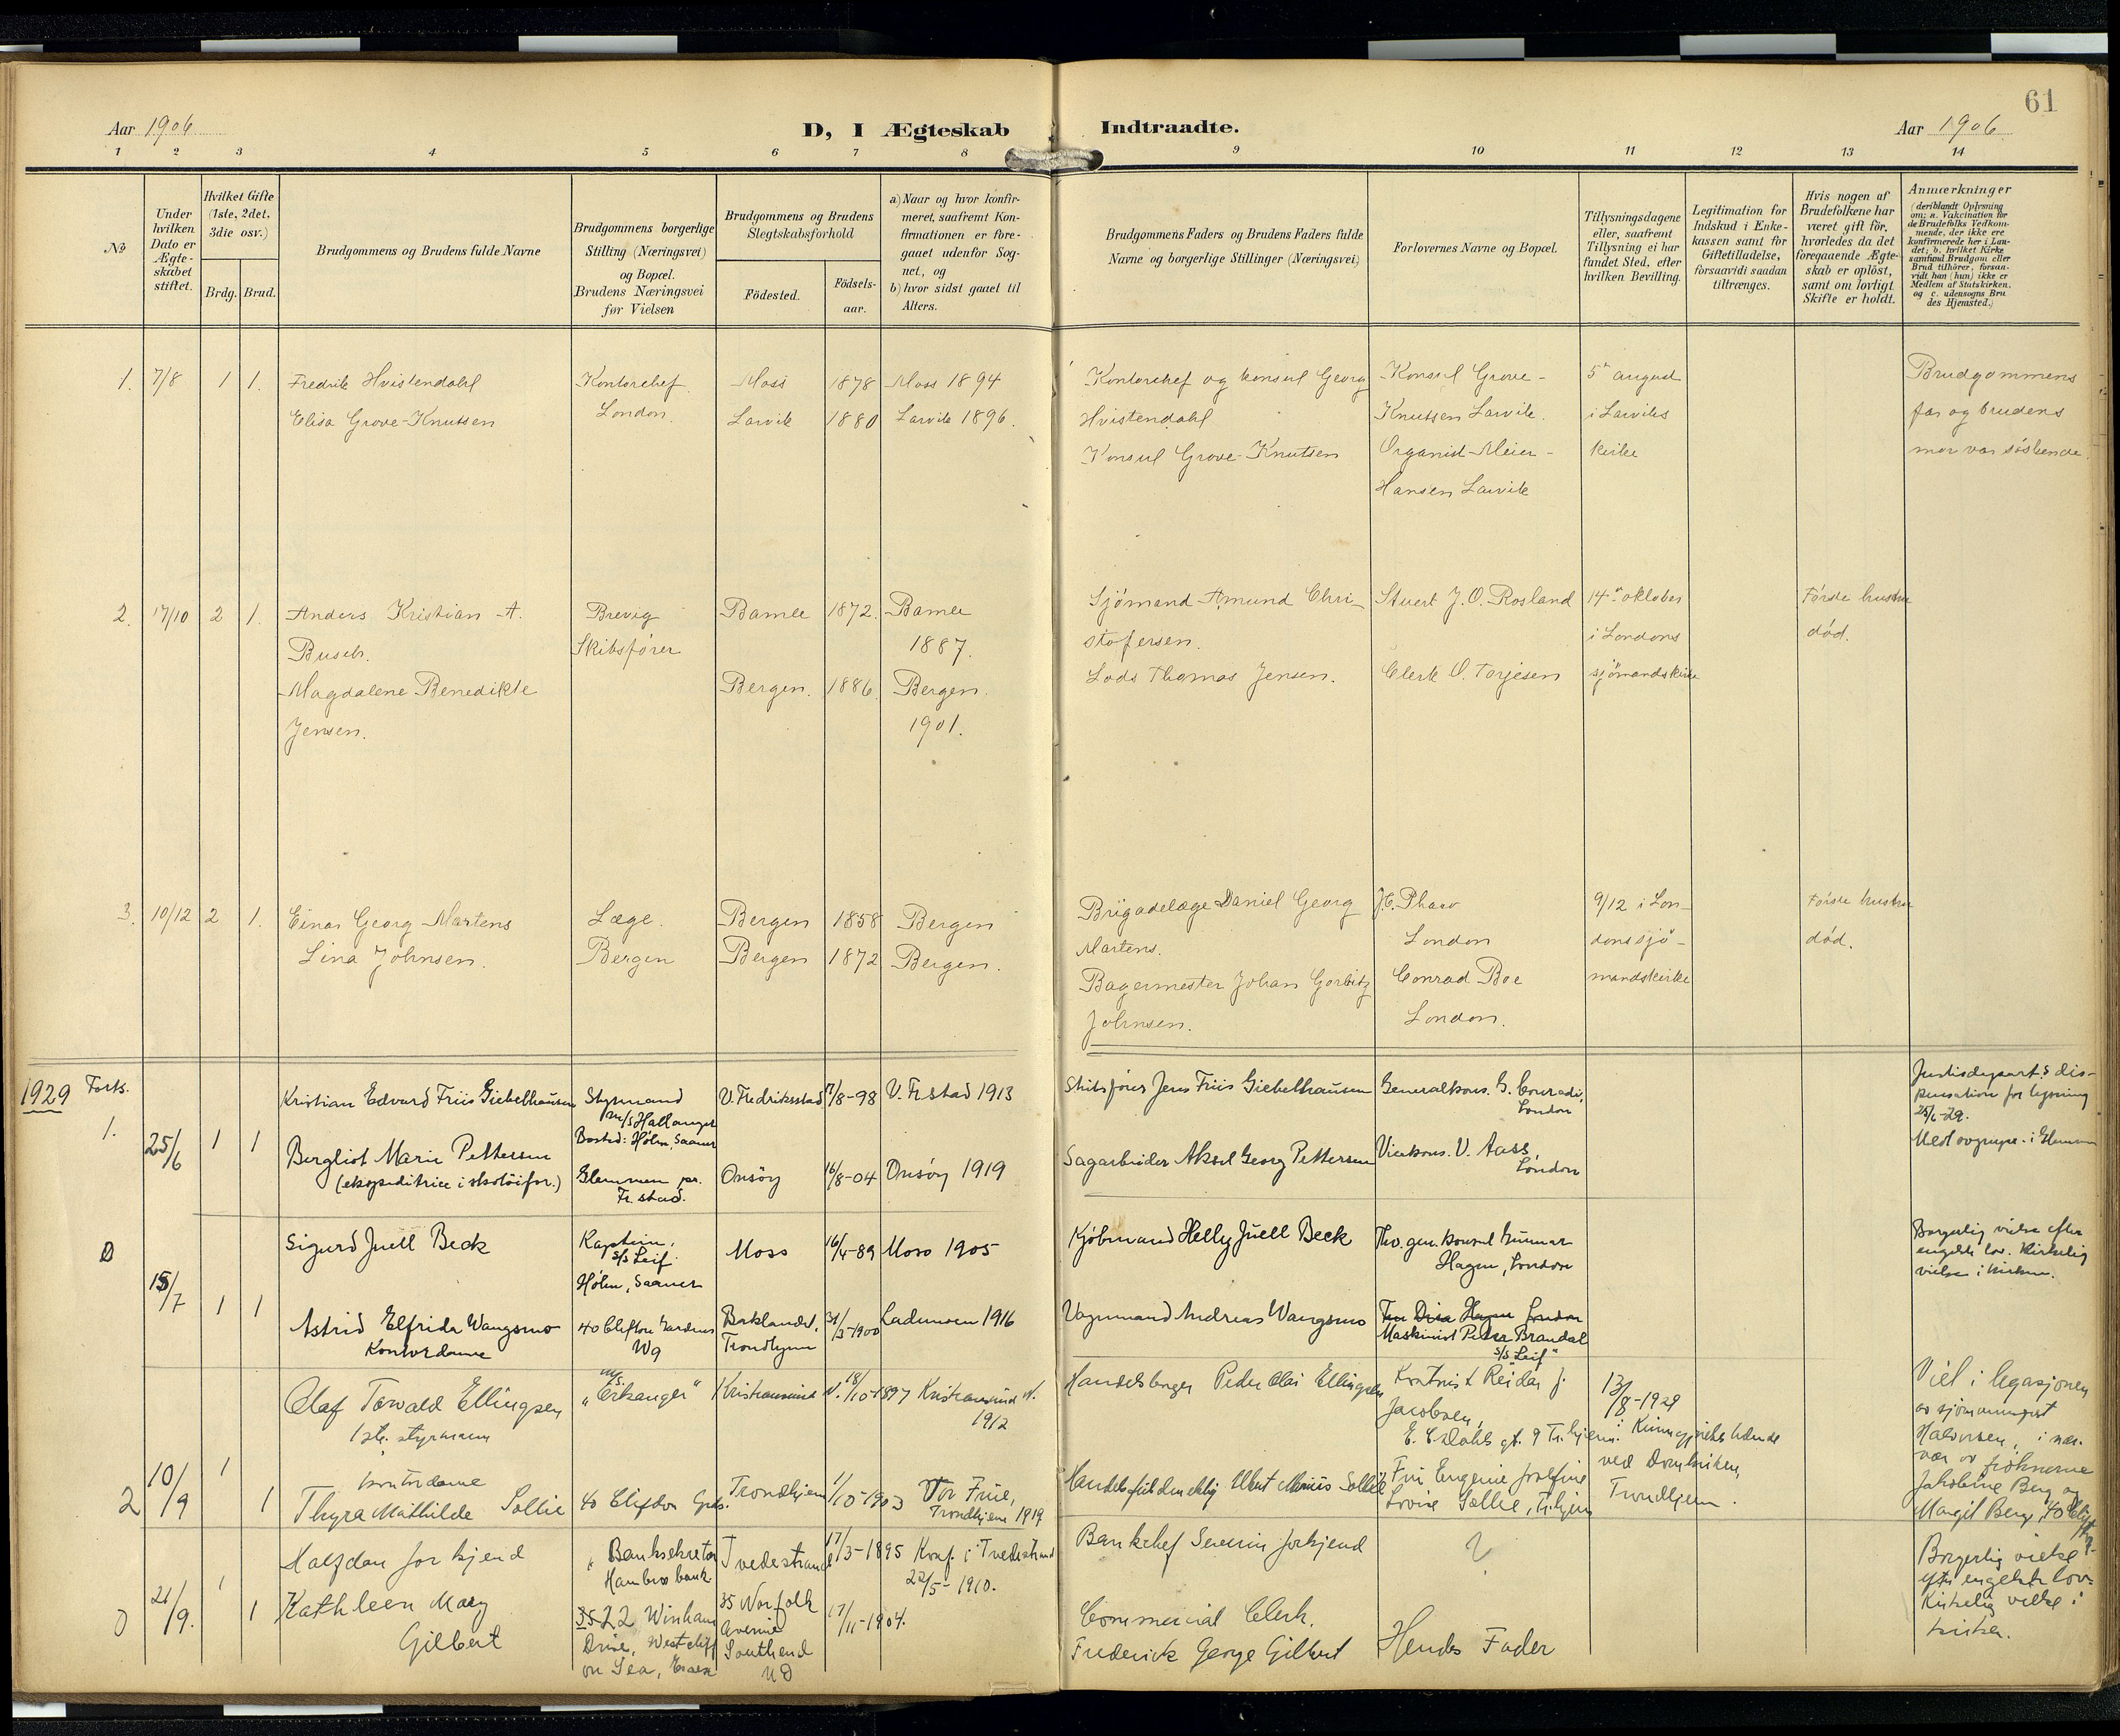 61
Aar 1906
D, I Ægteskab Indtraadte.
Aar 1906
1 2 3 4 5 6 7 8 9 10 11 12 13 14
No
Under hvilken Dato er Ægte-skabet stiftet.
Hvilket Gifte (1ste, 2det, 3die osv.)
Brdg. Brud.
Brudgommens og Brudens fulde Navne
Brudgommens borgerlige Stilling (Næringsvei) og Bopæl. Brudens Næringsvei før Vielsen
Brudgommens og Brudens Slegtskabsforhold
Födested.
Födsels-aar.
a) Naar og hvor konfir-meret, saafremt Kon-firmationen er fore-gaaet udenfor Sog-net, og
b) hvor sidst gaaet til Alters.
Brudgommens Faders og Brudens Faders fulde Navne og borgerlige Stillinger (Næringsvei)
Forlovernes Navne og Bopæl.
Tillysningsdagene eller, saafremt Tillysning ei har fundet Sted, efter hvilken Bevilling.
Legitimation for Indskud i Enke-kassen samt for Giftetilladelse, forsaavidt saadan tiltrænges.
Hvis nogen af Brudefolkene har været gift för, hvorledes da det foregaaende Ægte-skab er oplöst, samt om lovligt Skifte er holdt.
Anmærkninger (deriblandt Oplysning om: a. Vakcination for de Brudefolks Vedkom-mende, der ikke ere konfirmerede her i Lan-det; b. hvilket Kirke samfund Brudgom eller Brud tilhörer, forsaa-vidt han (hun) ikke er Medlem af Statskirken. og c. udensogns Bru des Hjemsted.)
1. 7/8 1 1. Fredrik Hvistendahl Kontorchef Moss 1878 Moss 1894 Kontorchef og konsul Georg Konsul Grove- 5te august Brudgommens
Elisa Grove-Knutsen London Larvik 1880 Larvik 1896. Hvistendahl Knutsen Larvik. i Larviks far og brudens
Konsul Grove-Knutsen Organist Meier- kirke mor var söskende.
Hansen Larvik
2. 17/10 2 1. Anders Kristian A. Brevig Bamle 1872. Bamle Sjömand Amund Chri- Stuert J. O. Rosland 14de oktober Første hustru
Busch. Skibsfører 1887. stofersen. i Londons död.
Magdalene Benedikte Bergen. 1886. Bergen. Lods Thomas Jensen. Clerk O. Torjesen sjömandskirke
Jensen. 1901.
3. 10/12 2 1. Einar Georg Martens Læge. Bergen 1858 Bergen Brigadelæge Daniel Georg J.C. 9/12 i Lon- Første hustru
Lina Johnsen. Bergen Bergen 1872 Bergen. Martens. London dons sjö- död.
Bagermester Johan Conrad Boe mandskirke
Johnsen. London.
1929 Forts.
1. 25/6 1 1 Kristian Edvard Friis Giebelhausen Styrmand V. Fredriksstad 7/8-98 V. Fr.stad 1913 Skibsförer Jens Friis Giebelhausen Generalkons. G. Conradi, Justisdepart.s dis-
m/s Hallanger London pensation for lysning
Bosted: Hölen, Saaner 25/6-29.
Bergliot Marie Pettersen Glemmen pr. Onsöy 16/8-04 Onsöy 1919 Sagarbeider Aksel Georg Pettersen Vicekons. V. Aass,
(ekspeditrice i skotöifor.) Fr.stad. London
0 15/7 1 1 Sigurd Juell Beck Kaptein, Moss 16/4-89 Moss 1905 Kjöbmand Helly Juell Beck Fhv. gen. konsul Gunnar Borgerlig vielse efter
s/s Leif. Hagen, London engelsk lov. Kirkelig
Hölen, Saaner vielse i kirken.
Astrid Elfrida Wangsmo 40 Clifton Gardens Baklandet, 31/3-1900 Lademoen 1916 Vognmand Andreas Wangsmo Fru Dina Hagen London
Kontordame W9 Trondhjem Maskinist Peder Brandal
s/s "Leif"
2 10/9 1 1 Olaf Torvald Ellingsen m/s. "Erkanger" Kristiansund N. 18/10-1897 Kristiansund N. Handelsborger Peder Olai Ellingsen Kontorist Reidar J. 13/8-1929 Viet i legasjonen
1ste. styrmann 1912 Jacobsen, av sjømannsprest
E. C. Dahls gt. 9 Tr.hjem. Halvorsen, i nær-
kontordame ved Domkirken, vær av frøknerne
Thyra Mathilde Sollie 40 Clifton Gds. Trondhjem 1/10-1903 Vor Frue, Fru Eugenie Josefine Trondhjem. Jakobine Berg og
Trondhjem 1919 Lovise Sollie, Tr.hjem Margit Berg, 40 Clifton
0 21/9. 1 1 Halfdan Jorkjend Banksekretær Tvedestrand 17/3-1895 Konf. i Tvedestrand Bankchef Severin Jorkjend ? Borgerlig vielse
Hambros bank 22/5-1910. efter engelsk lov.
Kathleen Mary 22 35 Norfolk 17/11-1904. Commercial Clerk. Kirkelig vielse i
Gilbert Drive, Westcliff Avenue Frederick George Gilbert Hendes Fader kirken.
on Sea, Essex Southend